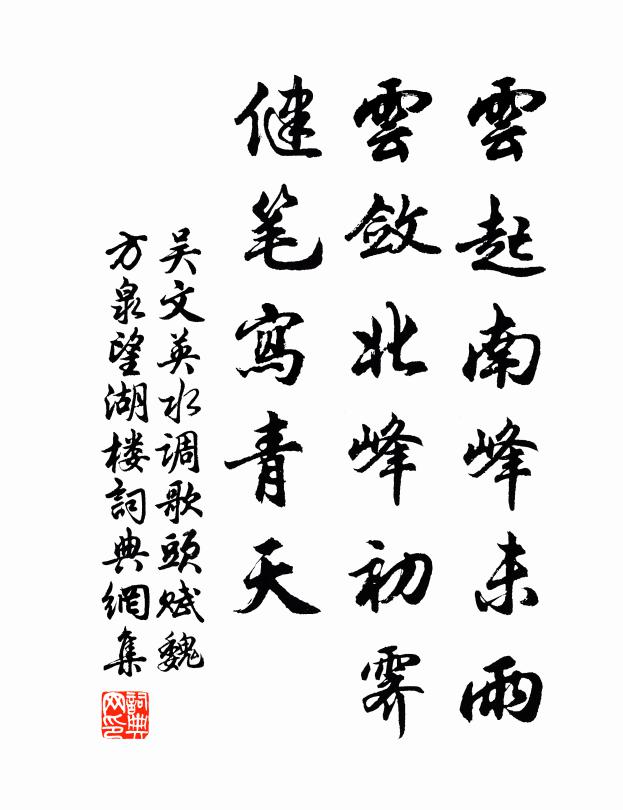 雲起南峰未雨
雲斂北峰初霽
健笔寫青天
吴文英水调歌頭赋魏
方泉望湖楼詞典網集
詞典网印